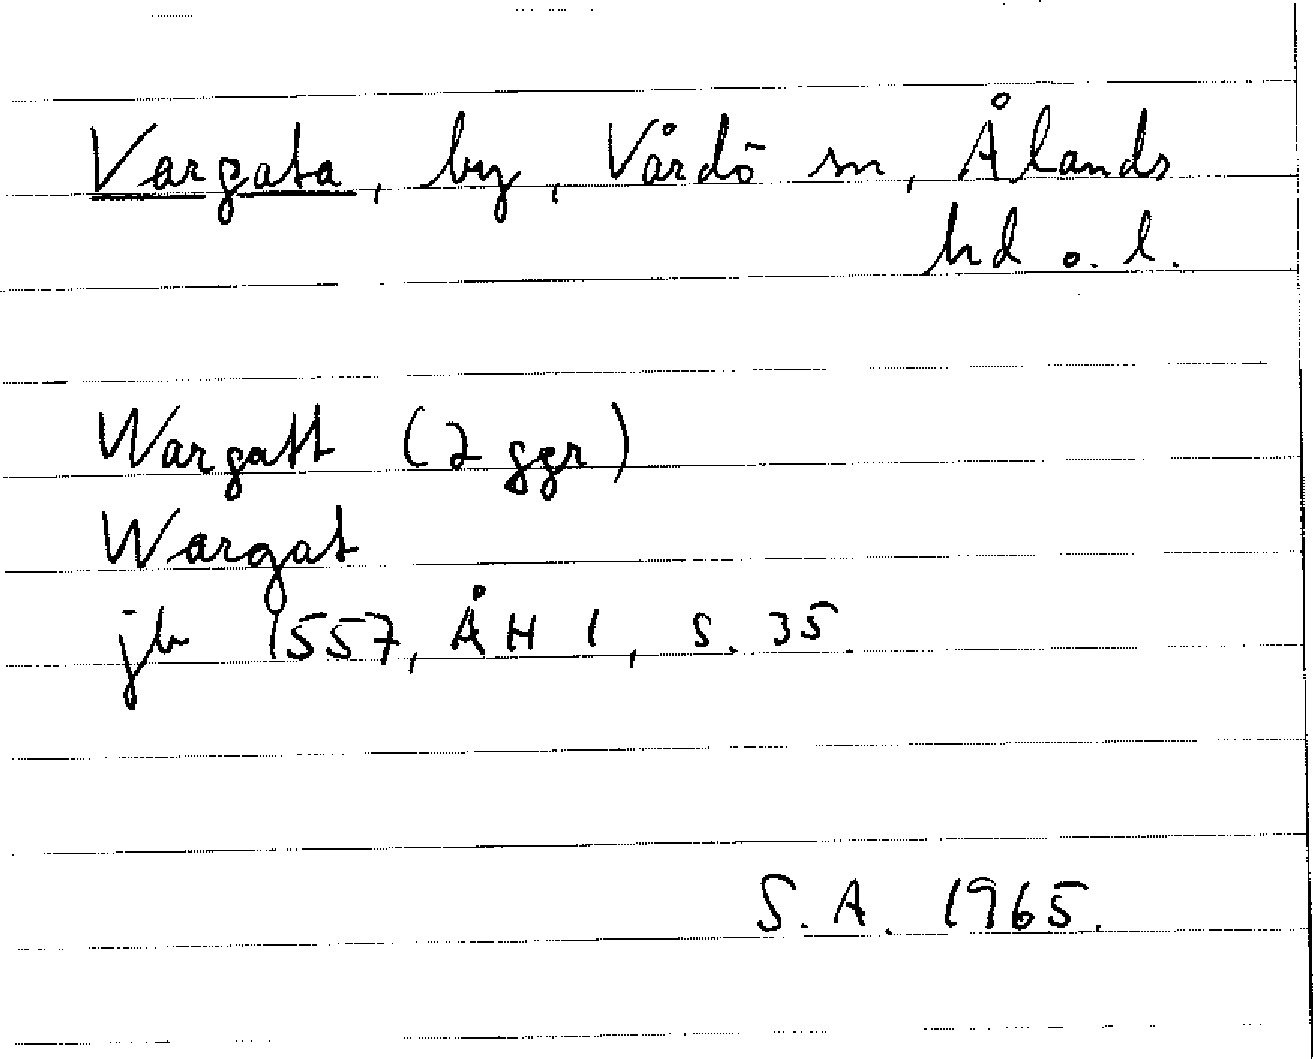 Vargata, by, Vårdö sn, Ålands
hd o. l.
Wargatt (2 ggr)
Wargat
jb 1557, ÅH 1, s. 35
S.A. 1965.